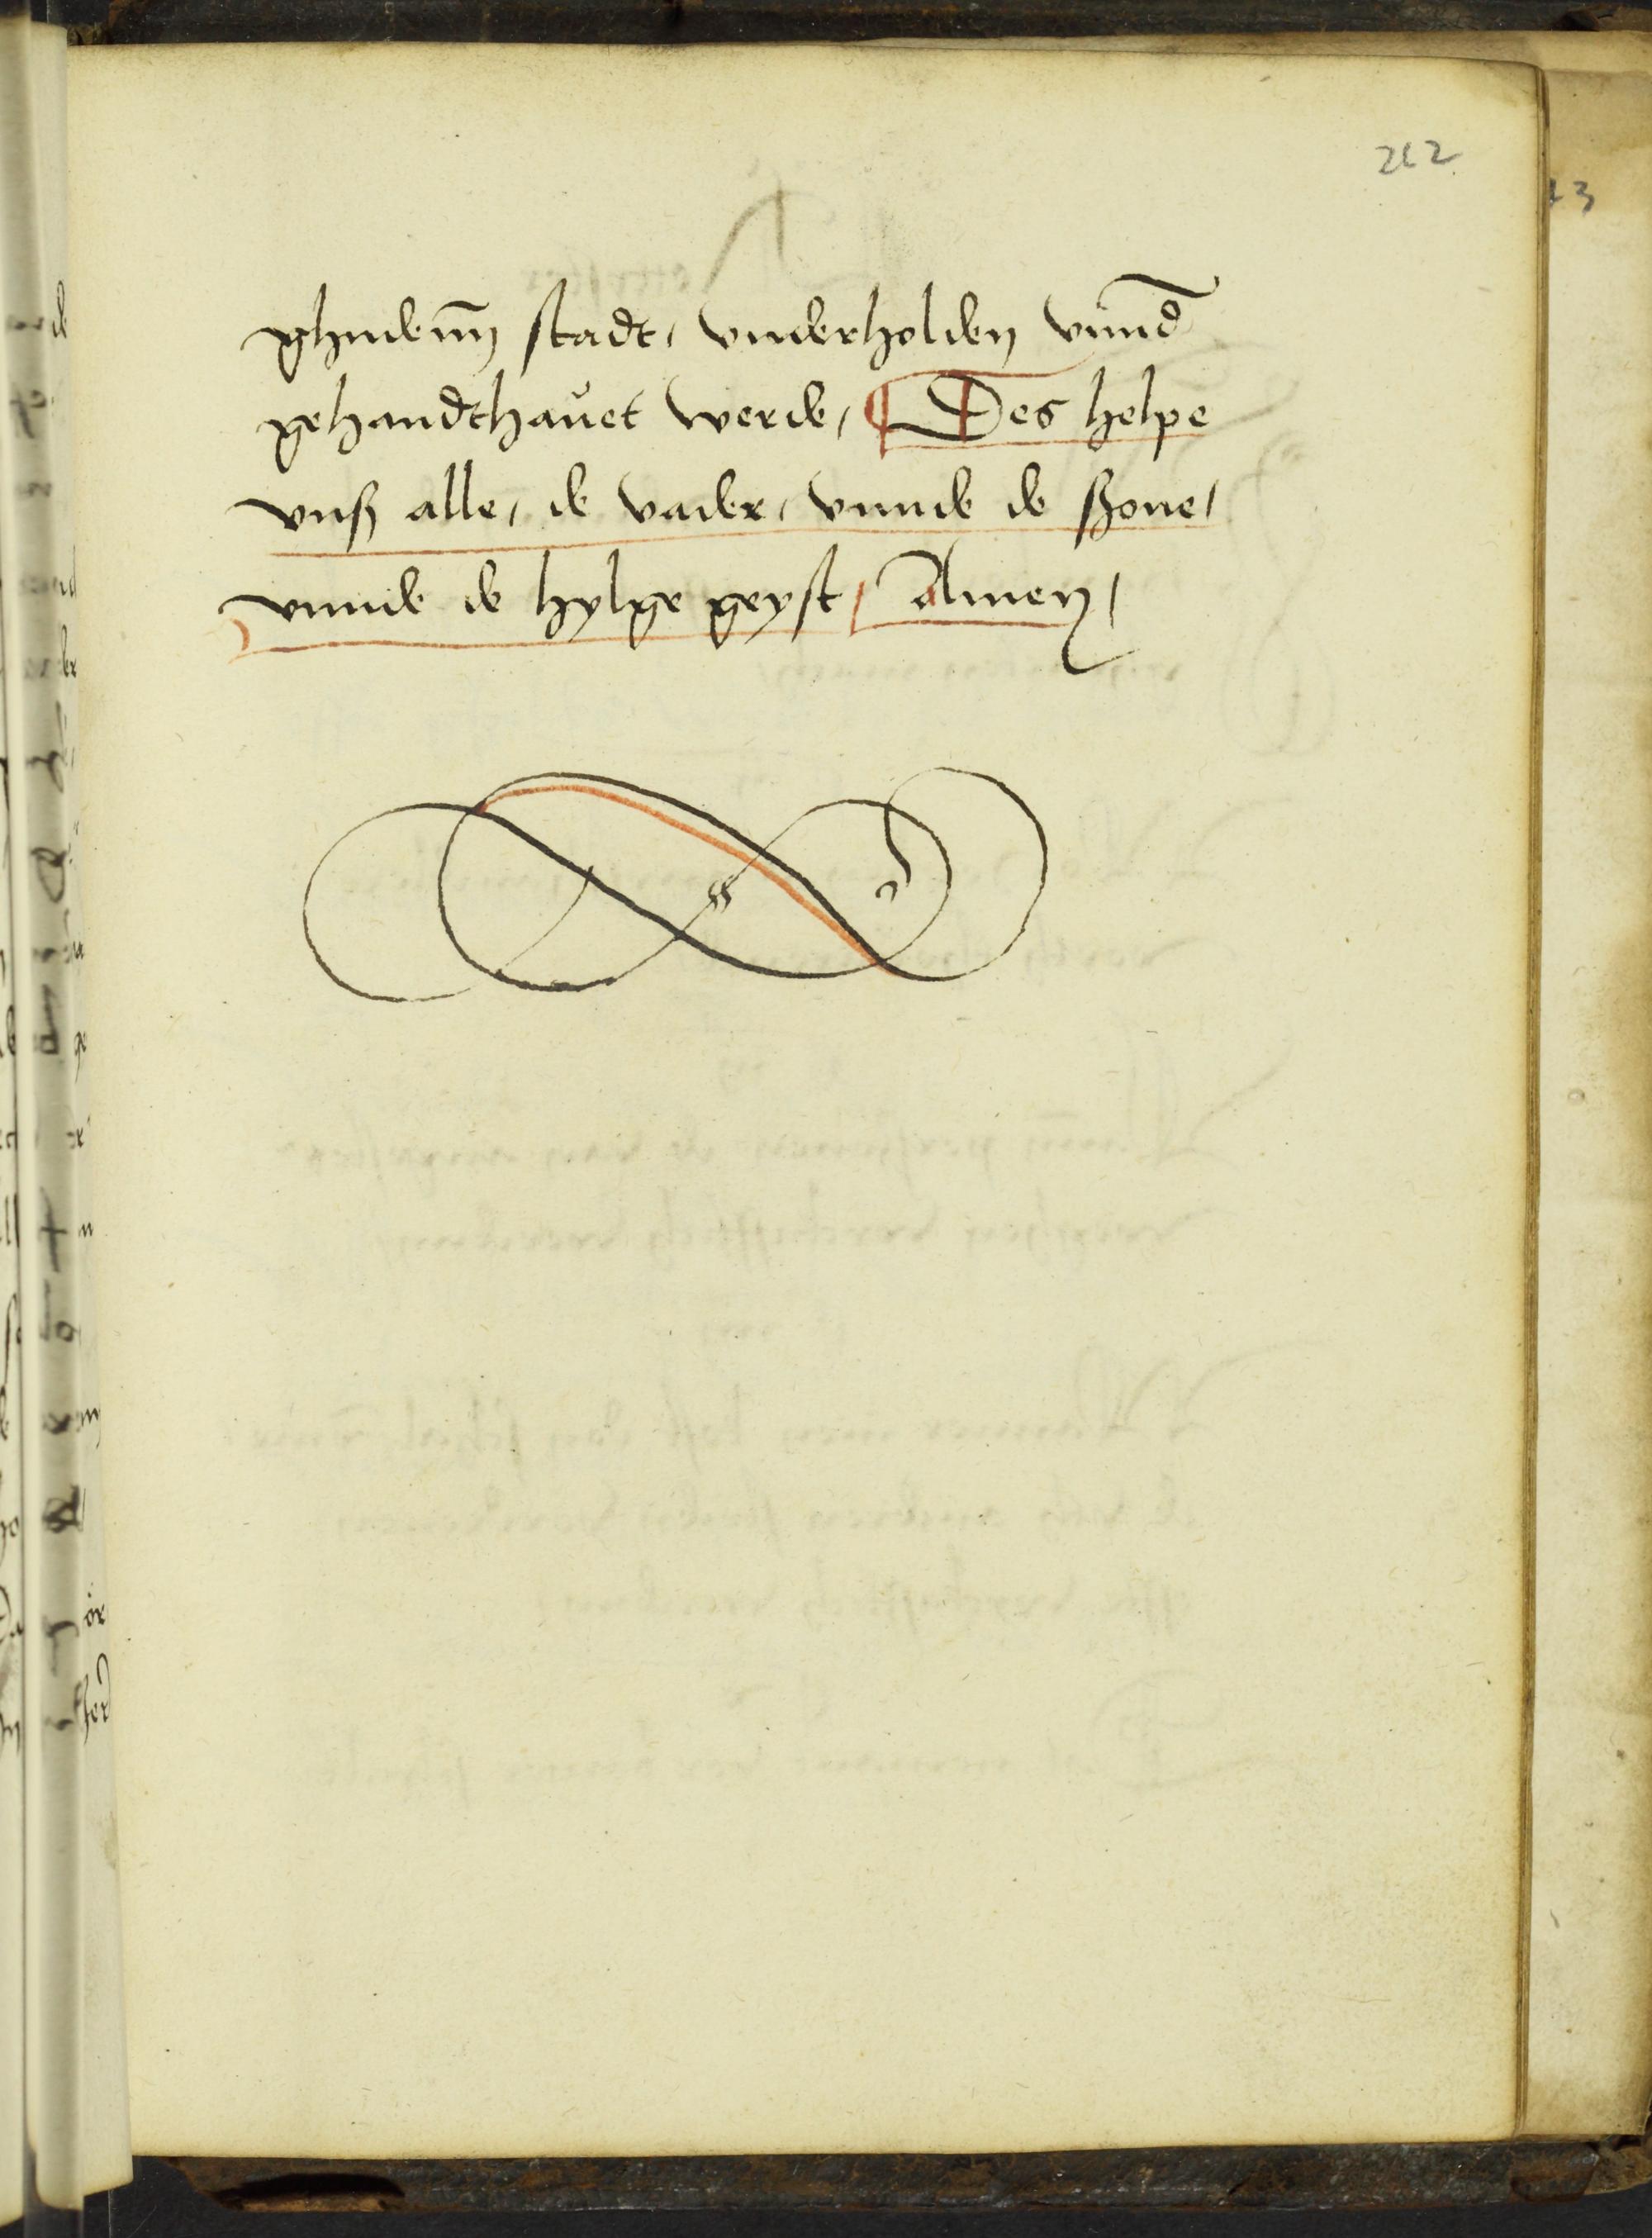 212
ghudenn stadt, vnderholden vnnd
gehandthauet werde, Des helpe
vnß alle, de vader, vnnde de ßone,
vnnde de hylge geyst, Amen,